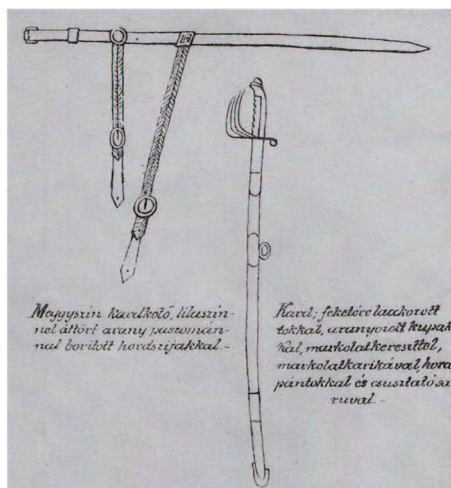 Meggyszin kardkötő, lilaszin-
nel áttört arany paszomán-
nal boritott hordszijakkal.-
Kard; feketére lackozott
tokkal, aranyozott kupak
kal, markolatkereszttel,
markolatkarikával, hord
pántokkal és csusztatósa
ruval.-